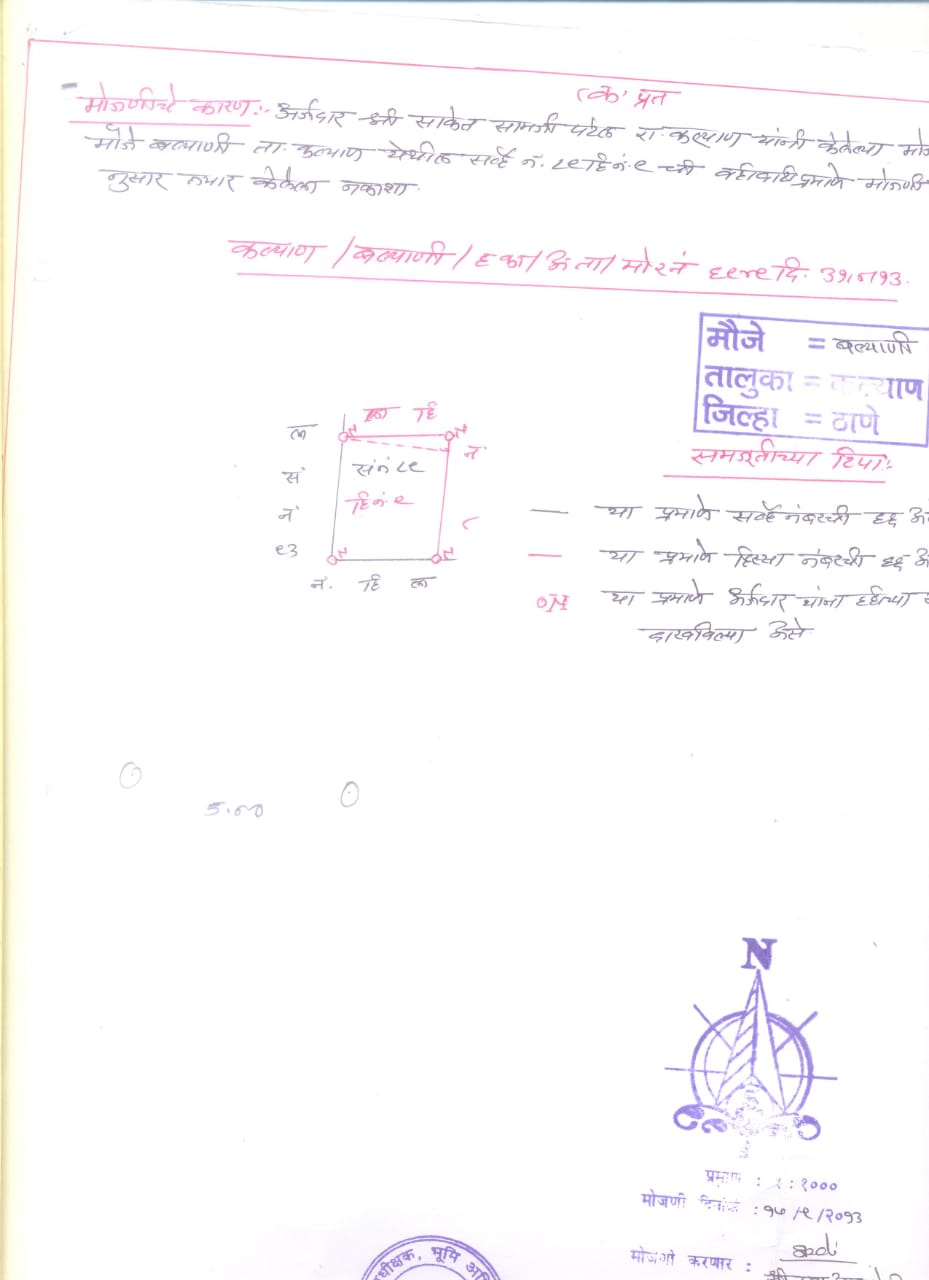 'क' प्रत
मोजणीचे कारण:- अर्जदार श्री साकेत सामजी पटेल रा. कल्याण यांनी केलेल्या मोज
मौजे बल्याणी ता. कल्याण येथील सर्व्हे नं. ८९ हि.नं. ९ ची वहीवाटीप्रमाणे मोजणी
नुसार तयार केलेला नकाशा.
कल्याण / बल्याणी / ह का / अ ता / मो र नं ६९२९ दि.
मौजे = बल्याणी
तालुका = कल्याण
जिल्हा = ठाणे
समजूतीच्या टिपा:-
— या प्रमाणे सर्व्हे नंबरची हद्द असे
— या प्रमाणे हिस्सा नंबरची हद्द असे
या प्रमाणे अर्जदार यांना हद्दीच्या
दाखविल्या असे
हि
नं
ल
स
नं
९३
स.नं. ८९
हि.नं. ९
नं. हि ल
5.00
N
प्रमाण : १ : १०००
मोजणी दिनांक : १७/९/२०१३
मोजणी करणार :
धीक्षक, भूमि अभि